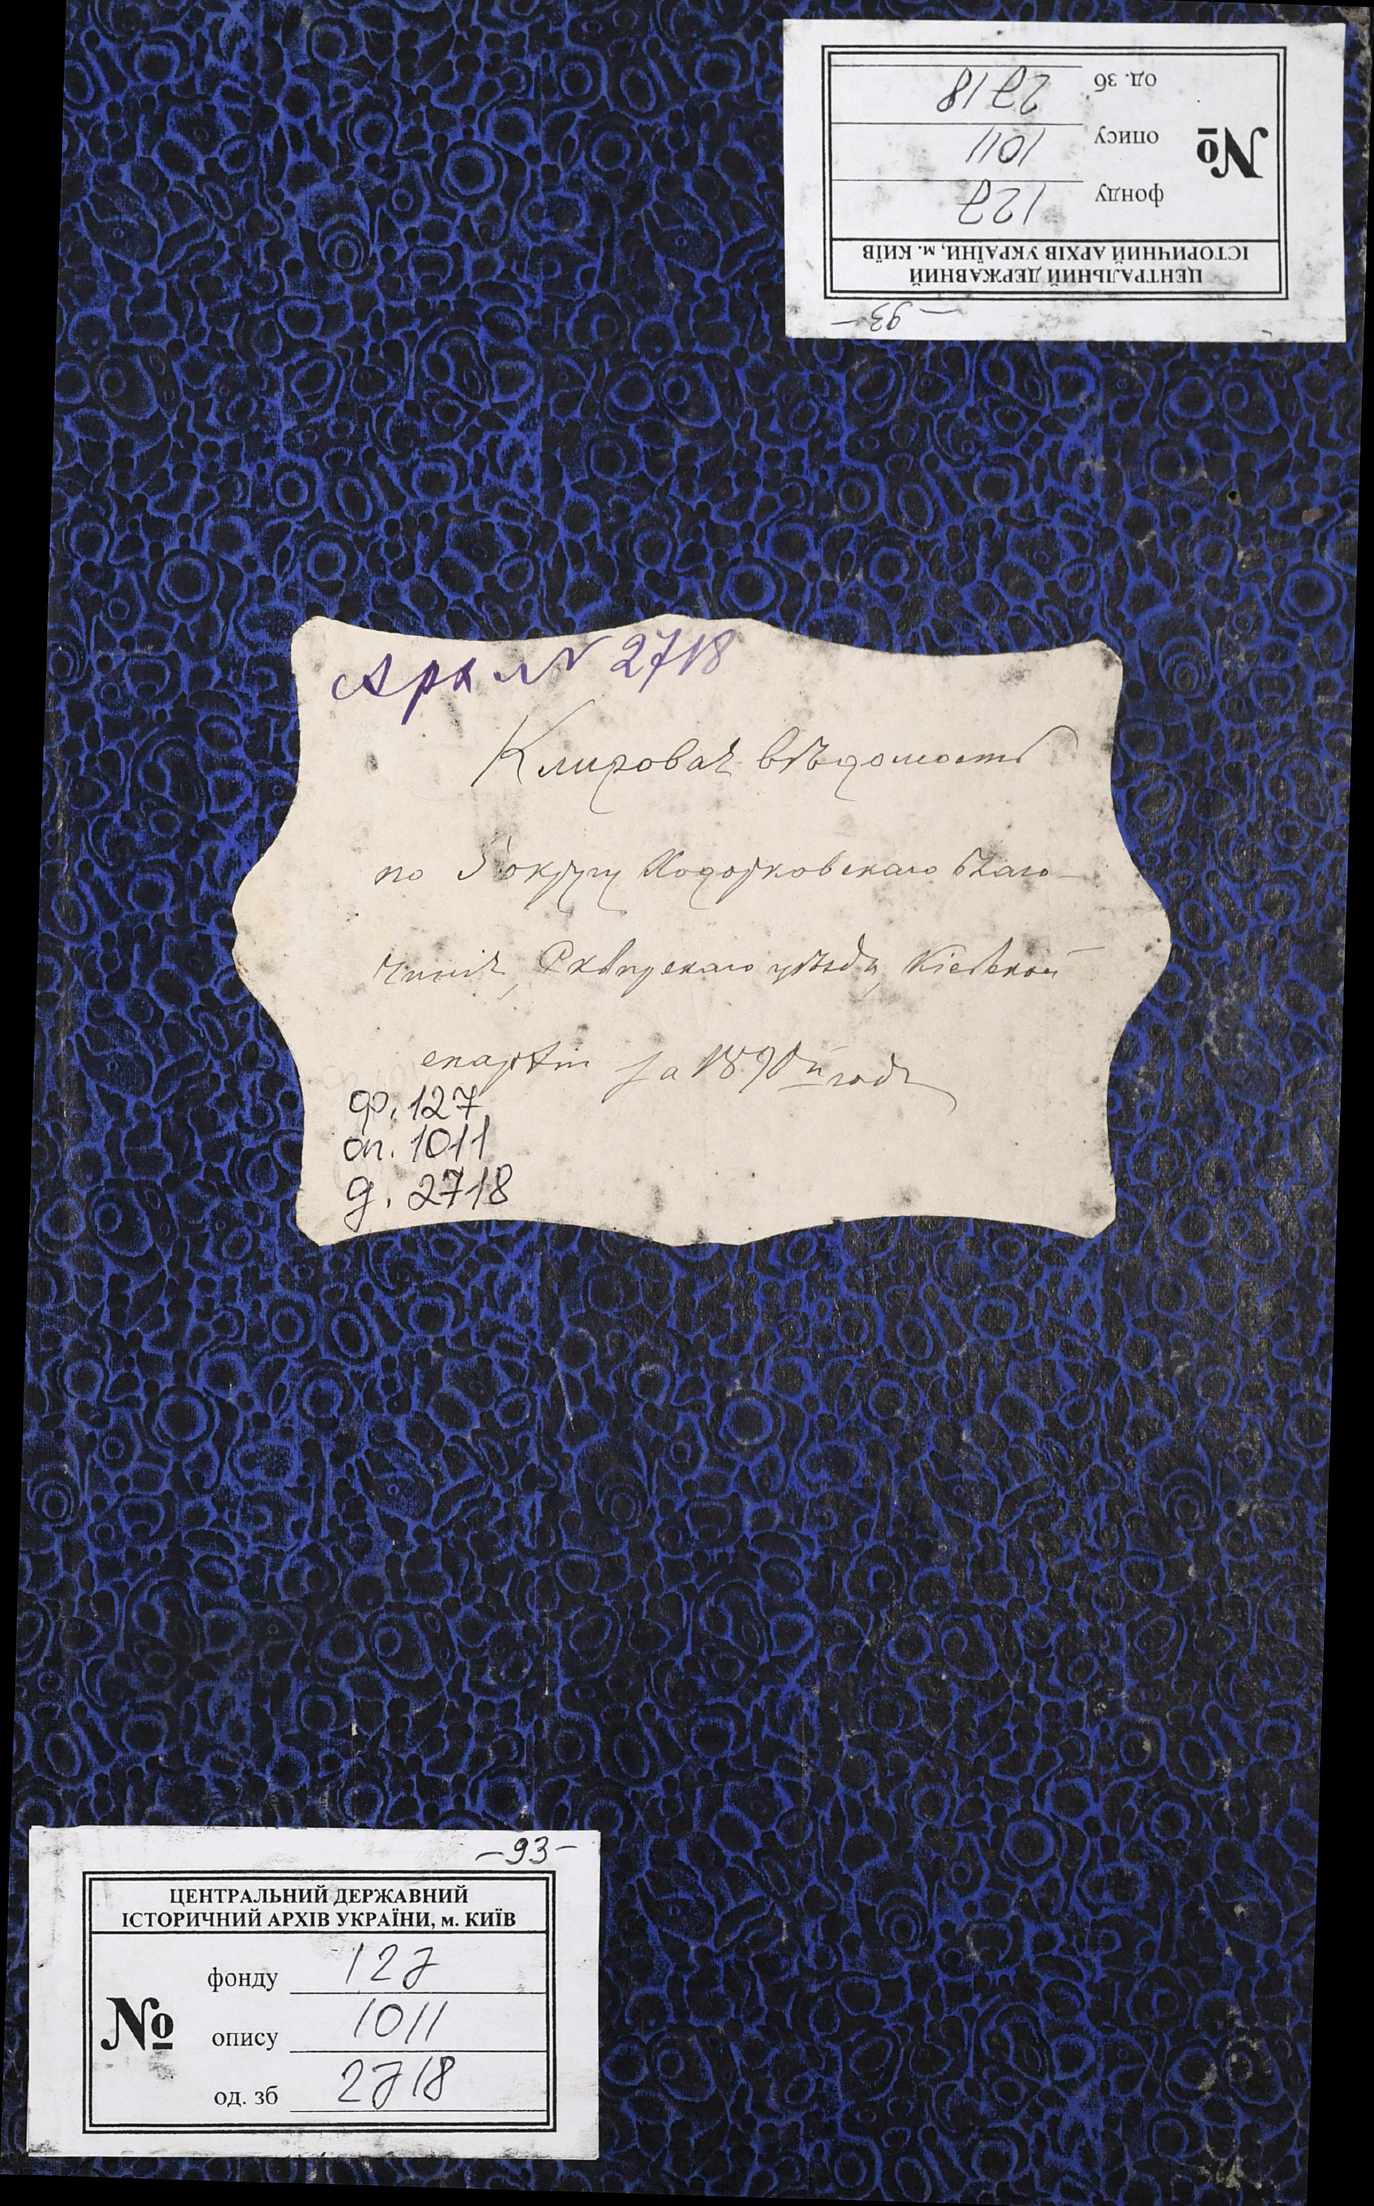 од. зб 2718
опису 1011
фонду 127
№
ЦЕНТРАЛЬНИЙ ДЕРЖАВНИЙ
ІСТОРИЧНИЙ АРХІВ УКРАЇНИ, м. КИЇВ
-93-
Арх № 2718
Клировая вѣдомость
по 5 округу Ходорковскаго благо-
чинія, Сквирскаго уѣзда, Кіевской
епархіи за 1890й годъ
ф. 127
оп. 1011
д. 2718
-93-
ЦЕНТРАЛЬНИЙ ДЕРЖАВНИЙ
ІСТОРИЧНИЙ АРХІВ УКРАЇНИ, м. КИЇВ
№
фонду 127
опису 1011
од. зб 2718